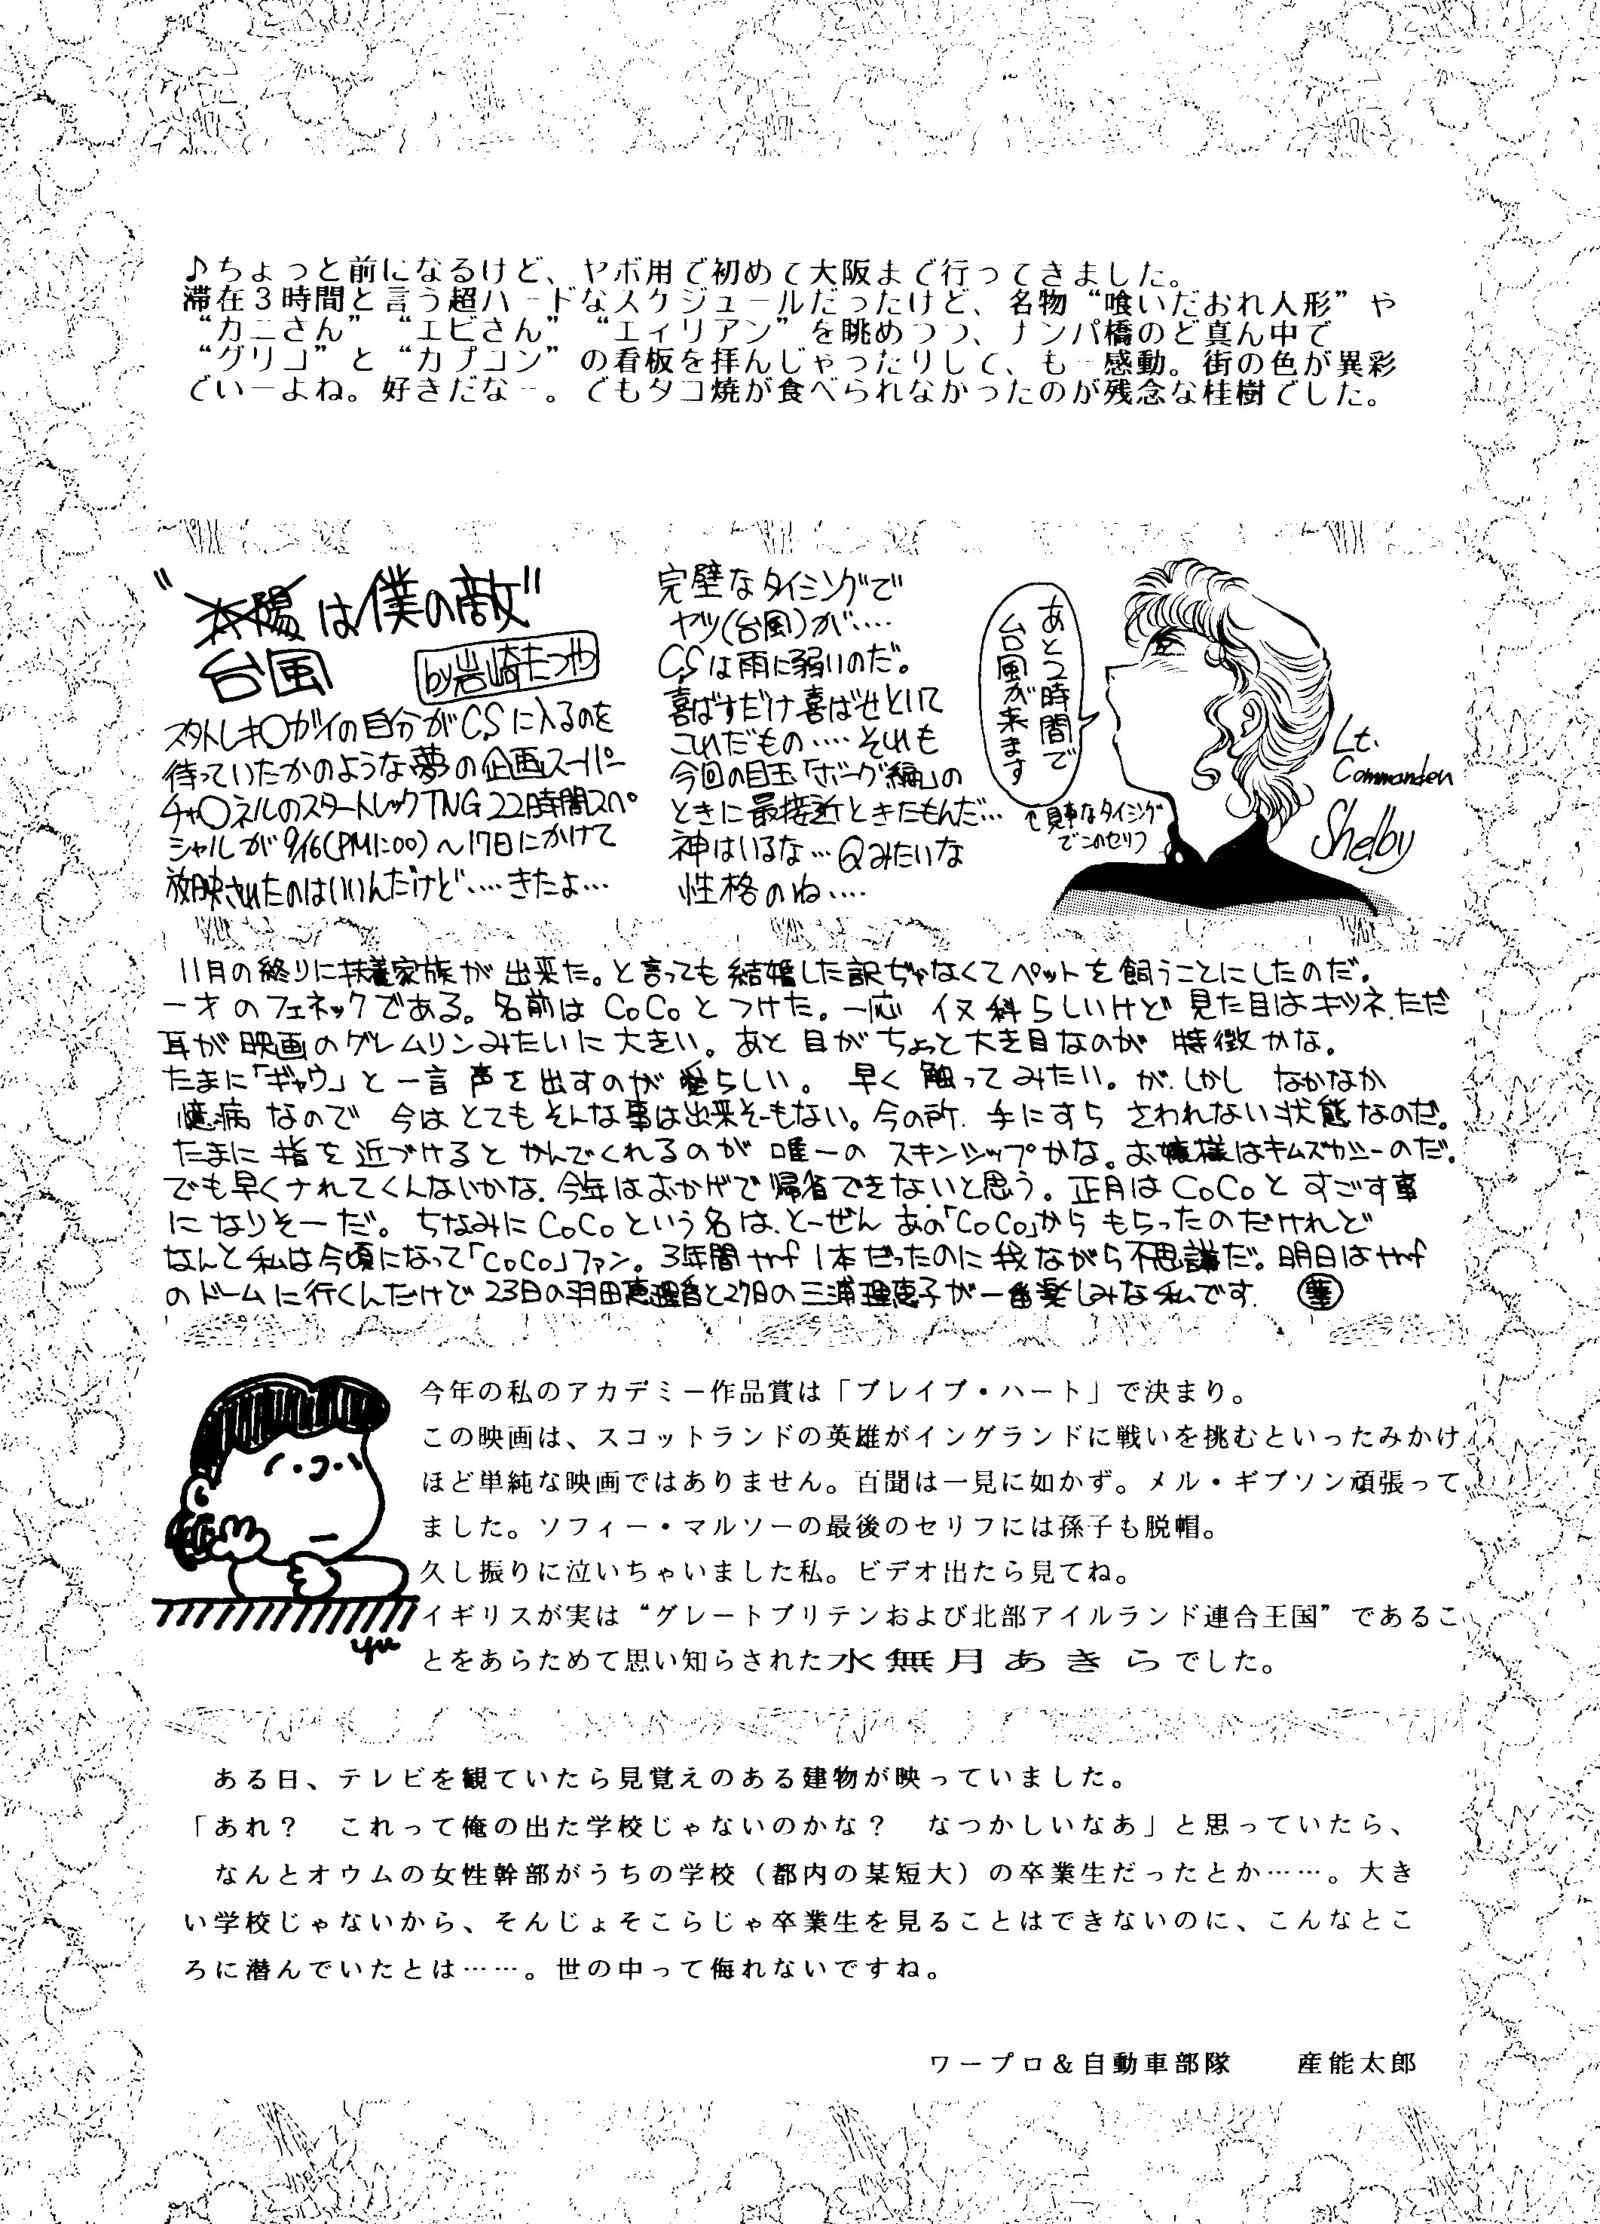 ♪ちょっと前になるけど、ヤボ用で初めて大阪まで行ってきました。
滞在3時間と言う超ハードなスケジュールだったけど、名物“喰いだおれ人形”や
“カニさん”“エビさん”“エィリアン”を眺めつつ、ナンパ橋のど真ん中で
“グリコ”と“カプコン”の看板を拝んじゃったりして、も一感動。街の色が異彩
でいーよね。好きだなー。でもタコ焼が食べられなかったのが残念な桂樹でした。
“太陽は僕の敵”
台風
by岩崎たつや
スタトレキ〇ガイの自分がCSに入るのを
待っていたかのような夢の企画スーパー
チャ〇ネルのスタートレックTNG22時間スペ
シャルが9/16(PM1:00)〜17日にかけて
放映されたのはいいんだけど‥‥きたよ…
完璧なタイミングで
ヤツ(台風)が‥‥
CSは雨に弱いのだ。
喜ばすだけ喜ばせといて
これだもの‥‥それも
今回の目玉「ボーグ編」の
ときに最接近ときたもんだ…
神はいるな…Qみたいな
性格のね‥‥
あと2時間で
台風が来ます
↑見事なタイミング
でこのセリフ
Lt.
Commander
Shelby
11月の終りに扶養家族が出来た。と言っても結婚した訳ぢゃなくてペットを飼うことにしたのだ。
一才のフェネックである。名前はCoCoとつけた。一応イヌ科らしいけど見た目はキツネ、ただ
耳が映画のグレムリンみたいに大きい。あと目がちょっと大き目なのが特徴かな。
たまに「ギャウ」と一言声を出すのが愛らしい。早く触ってみたい。が、しかしなかなか
憶病なので今はとてもそんな事は出来そーもない。今の所、手にすらさわれない状態なのだ。
たまに指を近づけるとかんでくれるのが唯一のスキンシップかな。お嬢様はキムズカシーのだ。
でも早くナれてくんないかな、今年はおかげで帰省できないと思う。正月はCoCoとすごす事
になりそーだ。ちなみにCoCoという名は、とーぜんあの「CoCo」からもらったのだけれど
なんと私は今頃になって「CoCo」ファン。3年間ヤtmf1本だったのに我ながら不思議だ。明日はtmf
のドームに行くんだけど23日の羽田恵理香と27日の三浦理恵子が一番楽しみな私です。
今年の私のアカデミー作品賞は「ブレイブ・ハート」で決まり。
この映画は、スコットランドの英雄がイングランドに戦いを挑むといったみかけ
ほど単純な映画ではありません。百聞は一見に如かず。メル・ギブソン頑張って
ました。ソフィー・マルソーの最後のセリフには孫子も脱帽。
久し振りに泣いちゃいました私。ビデオ出たら見てね。
イギリスが実は“グレートブリテンおよび北部アイルランド連合王国”であるこ
とをあらためて思い知らされた水無月あきらでした。
yu
ある日、テレビを観ていたら見覚えのある建物が映っていました。
「あれ？　これって俺の出た学校じゃないのかな？　なつかしいなあ」と思っていたら、
なんとオウムの女性幹部がうちの学校（都内の某短大）の卒業生だったとか……。大き
い学校じゃないから、そんじょそこらじゃ卒業生を見ることはできないのに、こんなとこ
ろに潜んでいたとは……。世の中って侮れないですね。
ワープロ＆自動車部隊　　産能太郎